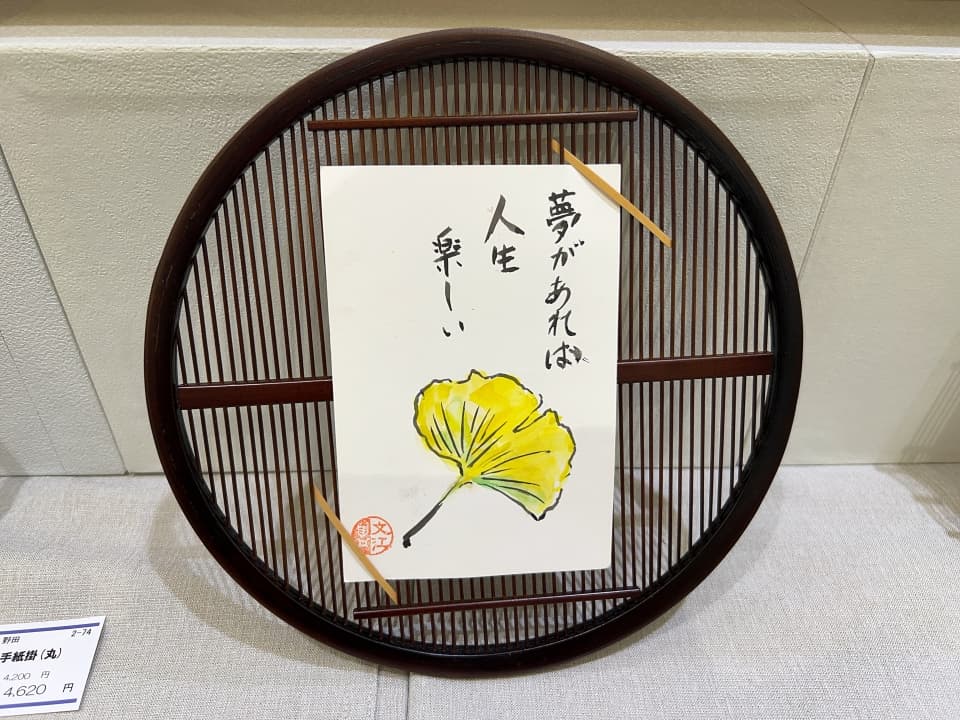 夢があれば
人生
楽しい
文江
野田
2-74
手紙掛(丸)
4,200 円
4,620 円